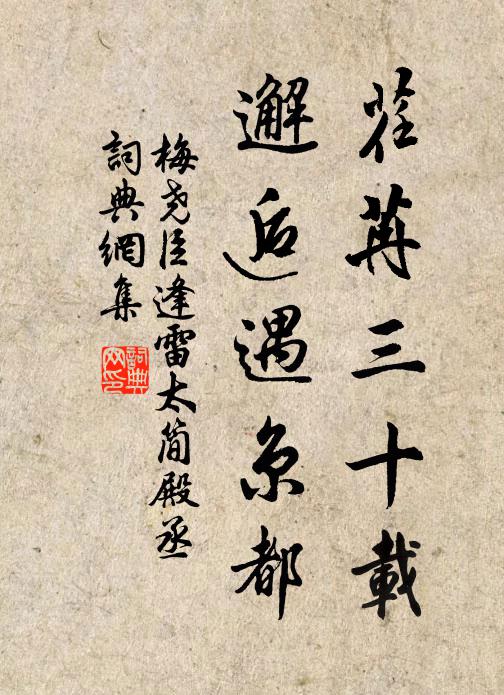 荏苒三十載
邂逅遇京都
梅堯臣逢雷太簡殿丞
詞典網集
詞典
网印